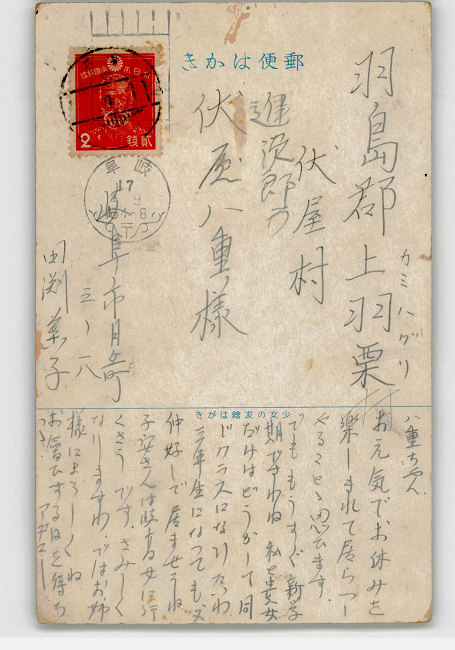 郵便はかき
大日本帝国郵便
2 銭 貳
岐阜
17
9
羽島郡上羽栗村
カミハグリ
伏屋村
進次郎方
伏屋八重子様
岐阜市月ノ町
三ノ八
少女の友繪はがき
八重ちやん
お元気でお休みを
楽しまれて居らつし
やることゝ思ひます。
でももうすぐ新学
期ですわね 私と貴女
だけはどうかして同
じクラスになりたいわ
三年生になつてもズ
仲好しで居ませうね
子安さんは岐高女に行
くさうです。さみしく
なりますわ。ではお姉
様によろしくね
お會ひする日を待ち